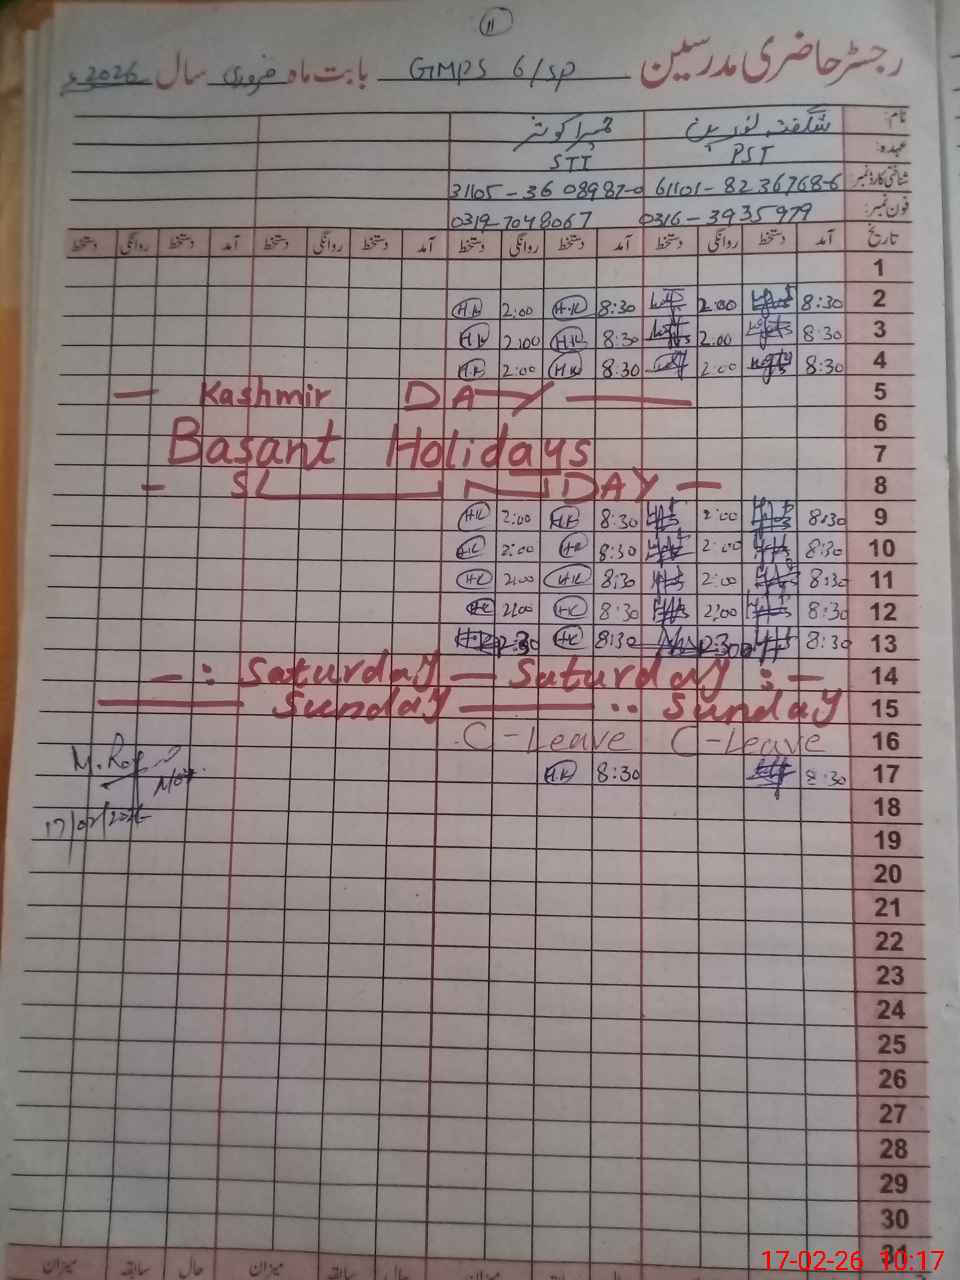 11
رجسٹر حاضری مدرسین GMPS 6/SP بابت ماہ فروری سال 2026ء
نام: شگفتہ نورین حمیرا کوثر
عہدہ: PST STI
شناختی کارڈ نمبر: 61101-8236768-6 31105-3608987-0
فون نمبر: 0316-3935979 0319-7048067
تاریخ آمد دستخط روانگی دستخط آمد دستخط روانگی دستخط آمد دستخط روانگی دستخط آمد دستخط روانگی دستخط
1
2 8:30 2:00 8:30 H.K 2:00 H.K
3 8:30 2:00 8:30 H.K 2:00 H.K
4 8:30 2:00 8:30 H.K 2:00 H.K
5 — Kashmir DAY —
6
7 Basant Holidays
8 — SUNDAY —
9 8:30 2:00 8:30 H.K 2:00 H.K
10 8:30 2:00 8:30 H.K 2:00 H.K
11 8:30 2:00 8:30 H.K 2:00 H.K
12 8:30 2:00 8:30 H.K 2:00 H.K
13 8:30 12:30 8:30 H.K 12:30 H.K
14 — : Saturday — Saturday : —
15 — Sunday — Sunday
16 C-Leave C-Leave
17 8:30 8:30 H.K
17/02/2026
18
19
20
21
22
23
24
25
26
27
28
29
30
31
حال سابقہ میزان حال سابقہ میزان
17-02-26 10:17